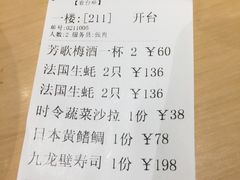 【看台单】
一楼:[211] 开台
帐号:0211005
人数:2 服务员:张肖
芳歌梅酒一杯 2 ￥60
法国生蚝 2只 ￥136
法国生蚝 2只 ￥136
时令蔬菜沙拉 1份 ￥38
日本黄鰭鲷 1份 ￥78
九龙壁寿司 1份 ￥198